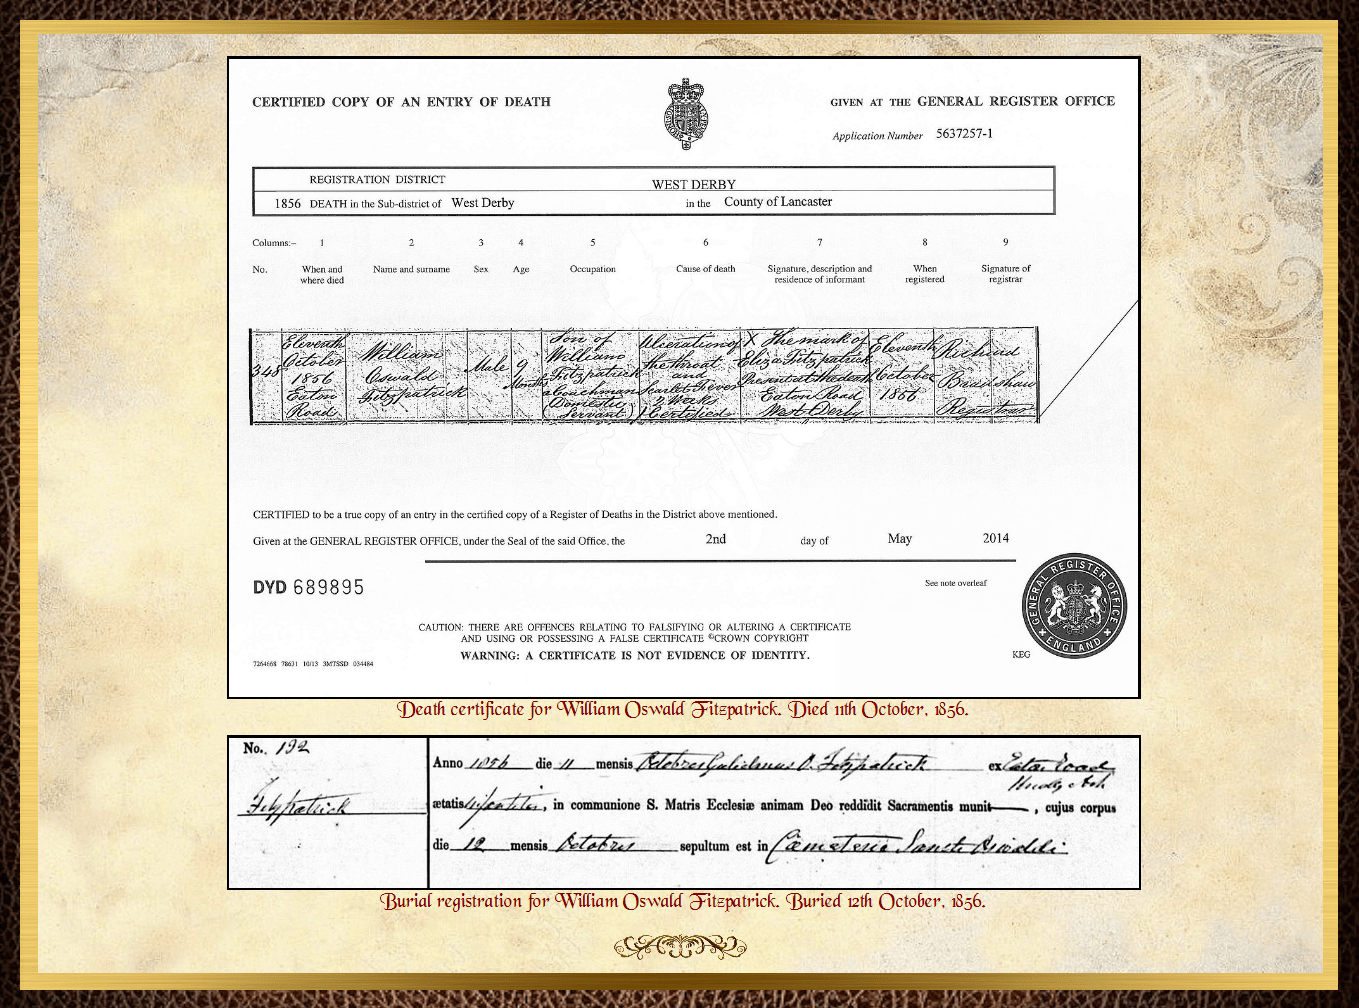 CERTIFIED COPY OF AN ENTRY OF DEATH
GIVEN AT THE GENERAL REGISTER OFFICE
Application Number 5637257-1
REGISTRATION DISTRICT WEST DERBY
1856 DEATH in the Sub-district of West Derby in the County of Lancaster
Columns:- 1 2 3 4 5 6 7 8 9
No. When and where died Name and surname Sex Age Occupation Cause of death Signature, description and residence of informant When registered Signature of registrar
348
Eleventh
October
1856
Eaton
Road
William
Oswald
Fitzpatrick
Male
9
Months
Son of
William
Fitzpatrick
a Coachman
(Domestic
Servant)
Ulceration of
the throat
and
Scarlet Fever
2 Weeks
Certified
X The mark of
Eliza Fitzpatrick
Present at the death
Eaton Road
West Derby
Eleventh
October
1856
Richard
Bradshaw
Registrar
CERTIFIED to be a true copy of an entry in the certified copy of a Register of Deaths in the District above mentioned.
Given at the GENERAL REGISTER OFFICE, under the Seal of the said Office, the 2nd day of May 2014
DYD 689895
See note overleaf
GENERAL REGISTER OFFICE
ENGLAND
CAUTION: THERE ARE OFFENCES RELATING TO FALSIFYING OR ALTERING A CERTIFICATE
AND USING OR POSSESSING A FALSE CERTIFICATE ©CROWN COPYRIGHT
WARNING: A CERTIFICATE IS NOT EVIDENCE OF IDENTITY.
7264668 78631 10/13 3MTSSD 034484
KEG
Death certificate for William Oswald Fitzpatrick. Died 11th October, 1856.
No. 192
Fitzpatrick
Anno 1856 die 11 mensis Octobris Gulielmus O. Fitzpatrick ex Eaton Road
ætatis, in communione S. Matris Ecclesiæ animam Deo reddidit Sacramentis munit, cujus corpus
die 12 mensis Octobris sepultum est in Cœmeterio Sancti Oswaldi
Burial registration for William Oswald Fitzpatrick. Buried 12th October, 1856.